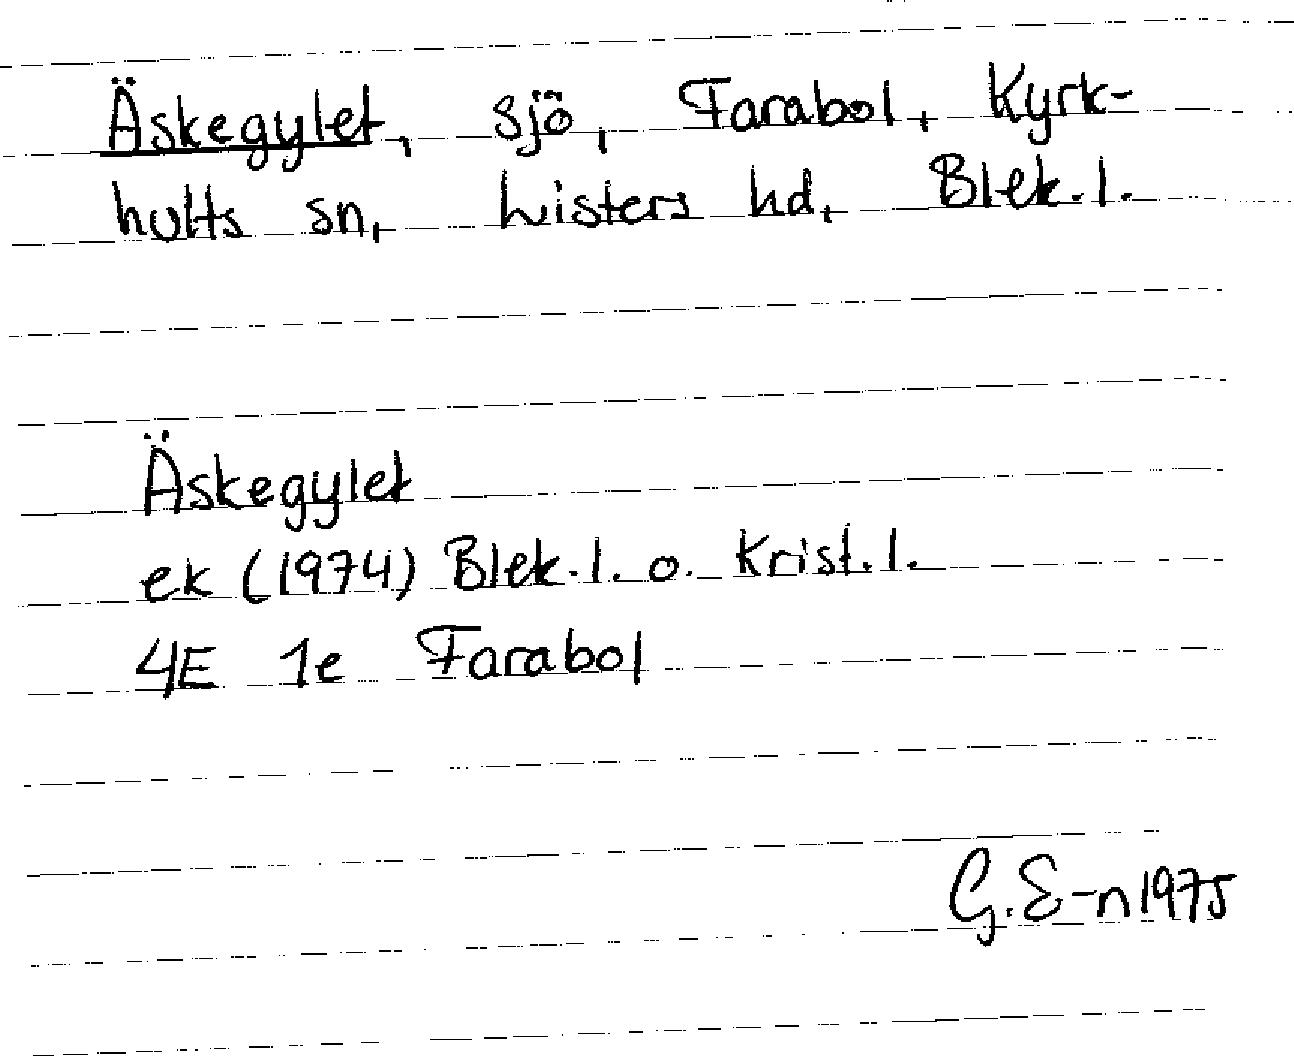 Äskegylet, sjö, Farabol, Kyrk-
hults sn, Listers hd, Blek.l.
Äskegylet
ek (1974) Blek.l. o. Krist.l.
4E 1e Farabol
G.E-n 1975